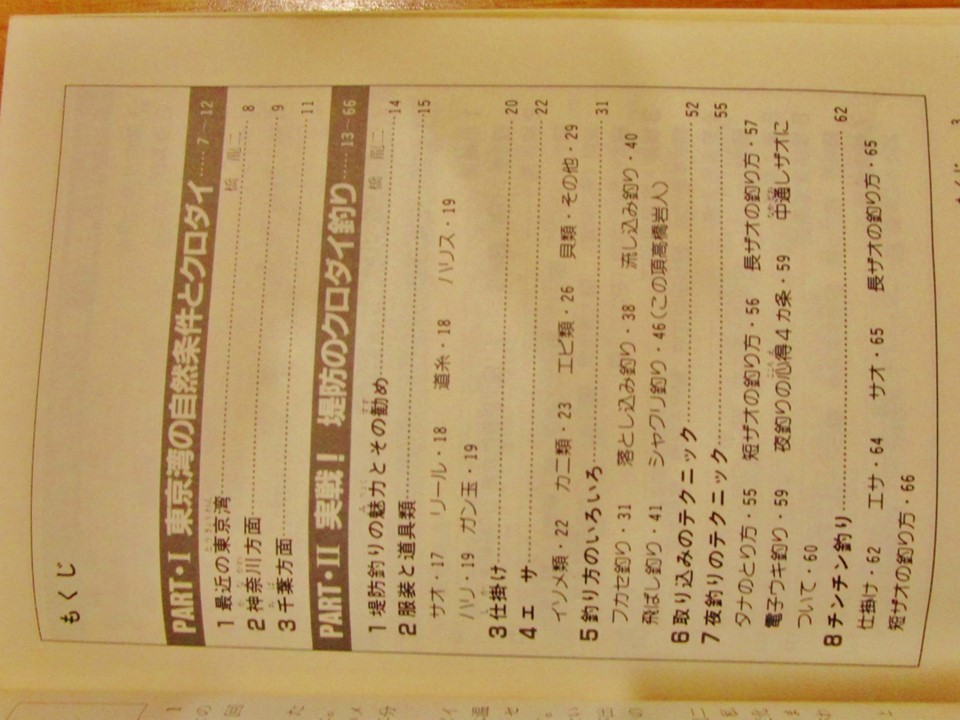 もくじ
PART・I 東京湾の自然条件とクロダイ……7〜12
1 最近の東京湾……8
2 神奈川方面……9
3 千葉方面……11
PART・II 実戦！ 堤防のクロダイ釣り……13〜66
1 堤防釣りの魅力とその勧め……14
2 服装と道具類……15
サオ・17 リール・18 道糸・18 ハリス・19
ハリ・19 ガン玉・19
3 仕掛け……20
4 エ サ……22
イソメ類・22 カニ類・23 エビ類・26 貝類・その他・29
5 釣り方のいろいろ……31
フカセ釣り・31 落とし込み釣り・38 流し込み釣り・40
飛ばし釣り・41 シャクリ釣り・46（この項高橋岩人）
6 取り込みのテクニック……52
7 夜釣りのテクニック……55
タナのとり方・55 短ザオの釣り方・56 長ザオの釣り方・57
電子ウキ釣り・59 夜釣りの心得4カ条・59 中通しザオに
ついて・60
8 チンチン釣り……62
仕掛け・62 エサ・64 サオ・65 長ザオの釣り方・65
短ザオの釣り方・66